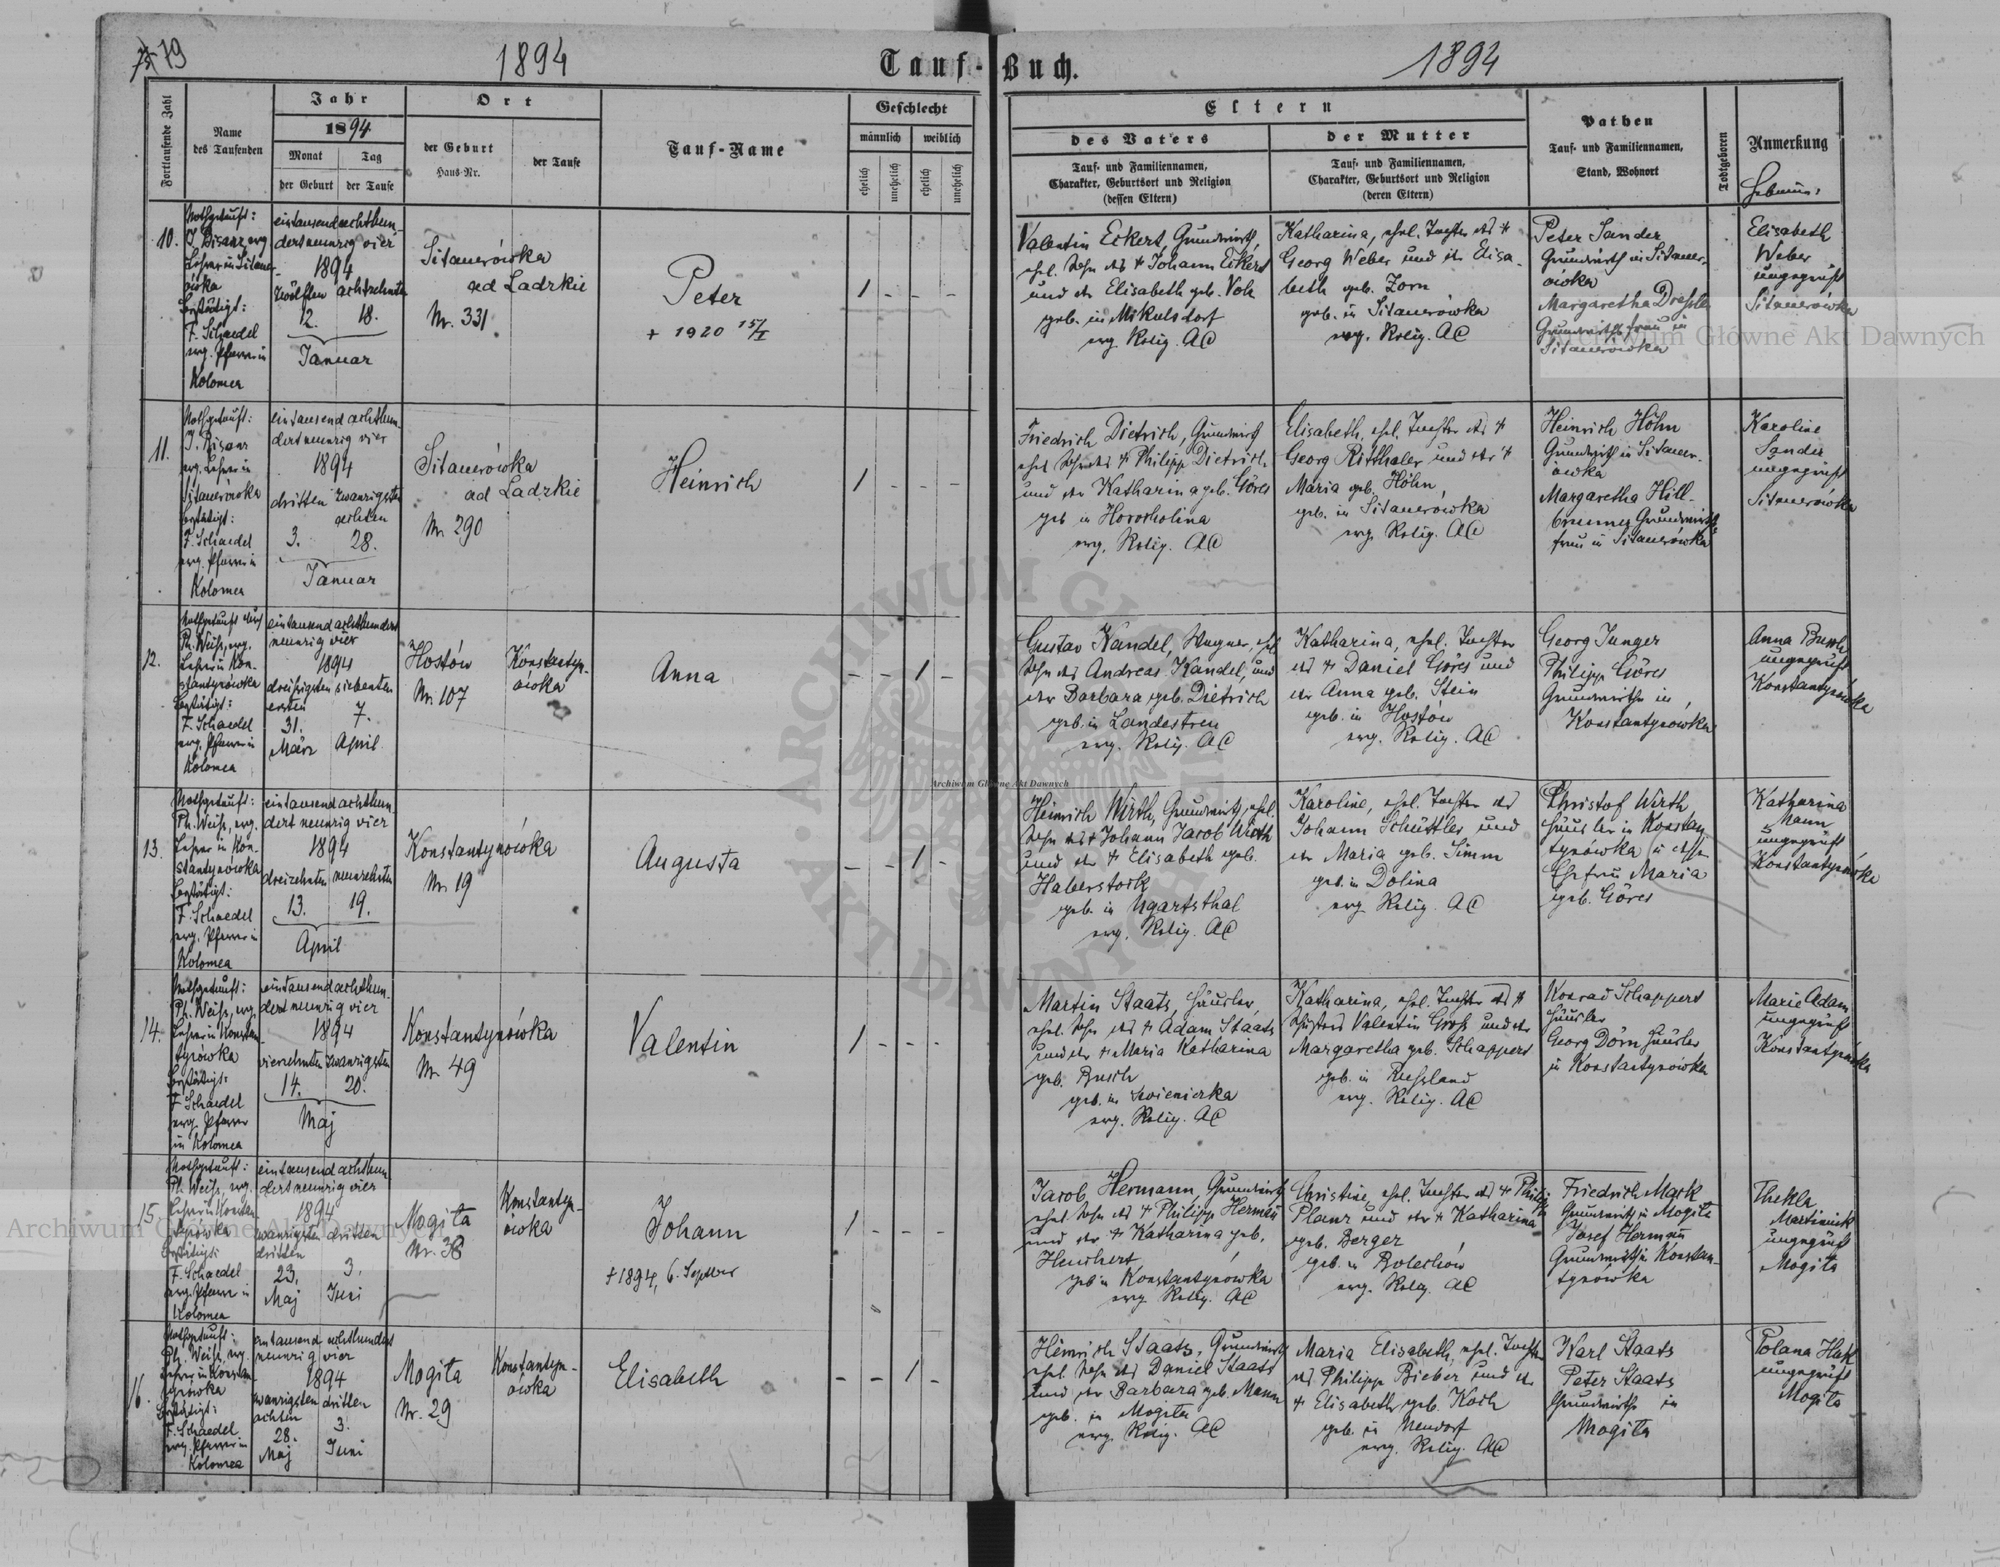 79
1894
Tauf-Buch.
1894
Fortlaufende Zahl
Name
des Taufenden
Jahr
1894
Monat
Tag
der Geburt
der Taufe
Ort
der Geburt
Haus-Nr.
der Taufe
Tauf-Name
Geschlecht
männlich
weiblich
ehelich
unehelich
ehelich
unehelich
Eltern
des Vaters
Tauf- und Familiennamen,
Charakter, Geburtsort und Religion
(dessen Eltern)
der Mutter
Tauf- und Familiennamen,
Charakter, Geburtsort und Religion
(deren Eltern)
Pathen
Tauf- und Familiennamen,
Stand, Wohnort
Todtgeboren
Anmerkung
10.
Nothgetauft:
Lehrer in Sitauer-
ówka
Bestätigt:
F. Schaedel
evg. Pfarrer in
Kolomea
eintausendachthun-
dertneunzig vier
1894
zwölften achtzehnten
12. 18.
Januar
Sitauerówka
ad Ladzkie
Nr. 331
Peter
+ 1920 15/I
1 - - -
Valentin Eckert, Grundwirth,
ehel. Sohn des + Johann Eckert
und der Elisabeth geb. Volk
geb. in Mikulsdorf
evg. Relig. AC
Katharina, ehel. Tochter des +
Georg Weber und der Elisa-
beth geb. Zorn
geb. in Sitauerówka
evg. Relig. AC
Peter Sander
Grundwirth in Sitauer-
ówka
Margaretha
Grundwirthsfrau in
Sitauerówka
Elisabeth
Weber
ungeprüft
Sitauerówka
11.
Nothgetauft:
evg. Lehrer in
Sitauerówka
Bestätigt:
F. Schaedel
evg. Pfarrer in
Kolomea
eintausend achthun-
dertneunzig vier
1894
dritten zwanzigsten
achten
3. 28.
Januar
Sitauerówka
ad Ladzkie
Nr. 290
Heinrich
1 - - -
Friedrich Dietrich, Grundwirth
ehel. Sohn des + Philipp Dietrich
und der Katharina geb. Göres
geb. in Horocholina
evg. Relig. AC
Elisabeth, ehel. Tochter des +
Georg Ritthaler und der +
Maria geb. Höhn,
geb. in Sitauerowka
evg. Relig. AC
Heinrich Höhn
Grundwirth in Sitauer-
owka
Margaretha Hill-
brunner Grundwirths-
frau in Sitauerówka
Karoline
Sander
ungeprüft
Sitauerówka
12.
Nothgetauft durch
Ph. Weiss, evg.
Lehrer in Kon-
stantynówka
Bestätigt:
F. Schaedel
evg. Pfarrer in
Kolomea
eintausendachthundert
neunzig vier
1894
dreissigsten siebenten
ersten
31. 7.
März April
Hostów
Nr. 107
Konstantyn-
ówka
Anna
- - 1 -
Gustav Kandel, Wagner, ehel.
Sohn des Andreas Kandel, und
der Barbara geb. Dietrich
geb. in Landestreu
evg. Relig. AC
Katharina, ehel. Tochter
des + Daniel Göres und
der Anna geb. Stein
geb. in Hostów
evg. Relig. AC
Georg Junger
Philipp Göres
Grundwirthe in
Konstantynowka
Anna
ungeprüft
Konstantynówka
13.
Nothgetauft:
Ph. Weiss, evg.
Lehrer in Kon-
stantynówka
Bestätigt:
F. Schaedel
evg. Pfarrer in
Kolomea
eintausendachthun-
dert neunzig vier
1894
dreizehnten neunzehnten
13. 19.
April
Konstantynówka
Nr. 19
Augusta
- - 1 -
Heinrich Wirth, Grundwirth, ehel.
Sohn des + Johann Jacob Wirth
und der + Elisabeth geb.
Haberstock
geb. in Ugartsthal
evg. Relig. AC
Karoline, ehel. Tochter des
Johann Schüttler und
der Maria geb. Simm
geb. in Dolina
evg. Relig. AC
Christof Wirth,
Häusler in Konstan-
tynówka u dessen
Ehefrau Maria
geb. Göres
Katharina
Mann
ungeprüft
Konstantynówka
14.
Nothgetauft:
Ph. Weiss, evg.
Lehrer in Konstan-
tynówka
Bestätigt:
F. Schaedel
evg. Pfarrer
in Kolomea
eintausendachthun-
dertneunzig vier
1894
vierzehnten zwanzigsten
14. 20.
Maj
Konstantynówka
Nr. 49
Valentin
1 - - -
Martin Staats, Häusler,
ehel. Sohn des + Adam Staats
und der + Maria Katharina
geb. Busch
geb. in Sewienicka
evg. Relig. AC
Katharina, ehel. Tochter des +
Schusters Valentin Gross und der
Margaretha geb. Schappert
geb. in Russland
evg. Relig. AC
Konrad Schappert
Häusler
Georg Dörn Häusler
in Konstantynówka
Marie Adam
ungeprüft
Konstantynówka
15.
Nothgetauft:
Ph. Weiss, evg.
Lehrer in Konstan-
tynówka
Bestätigt:
F. Schaedel
evg. Pfarrer in
Kolomea
eintausend achthun-
dertneunzig vier
1894
zwanzigsten dritten
dritten
23. 3.
Maj Juni
Mogiła
Nr. 38
Konstantyn-
ówka
Johann
+ 1894, 6. Septber
1 - - -
Jacob Hermann, Grundwirth
ehel. Sohn des + Philipp Hermann
und der + Katharina geb.
geb. in Konstantynówka
evg. Relig. AC
Christine, ehel. Tochter des + Philipp
Planz und der + Katharina
geb. Berger
geb. in Bolechów
evg. Relig. AC
Friedrich Mark
Grundwirth in Mogiła
Josef Hermann
Grundwirth in Konstan-
tynowka
Thekla
Martiniuk
ungeprüft
Mogiła
16.
Nothgetauft:
Ph. Weiss, evg.
Lehrer in Konstan-
tynówka
Bestätigt:
F. Schaedel
evg. Pfarrer in
Kolomea
eintausend achthundert
neunzig vier
1894
zwanzigsten dritten
achten
28. 3.
Maj Juni
Mogiła
Nr. 29
Konstantyn-
ówka
Elisabeth
- - 1 -
Heinrich Staats, Grundwirth
ehel. Sohn des Daniel Staats
und der Barbara geb. Mann
geb. in Mogiła
evg. Relig. AC
Maria Elisabeth, ehel. Tochter
des Philipp Bieber und der
+ Elisabeth geb. Koch
geb. in Neudorf
evg. Relig. AC
Karl Staats
Peter Staats
Grundwirthe in
Mogiła
Polana
ungeprüft
Mogiła
Archiwum Główne Akt Dawnych
Archiwum Główne Akt Dawnych
Archiwum Główne Akt Dawnych